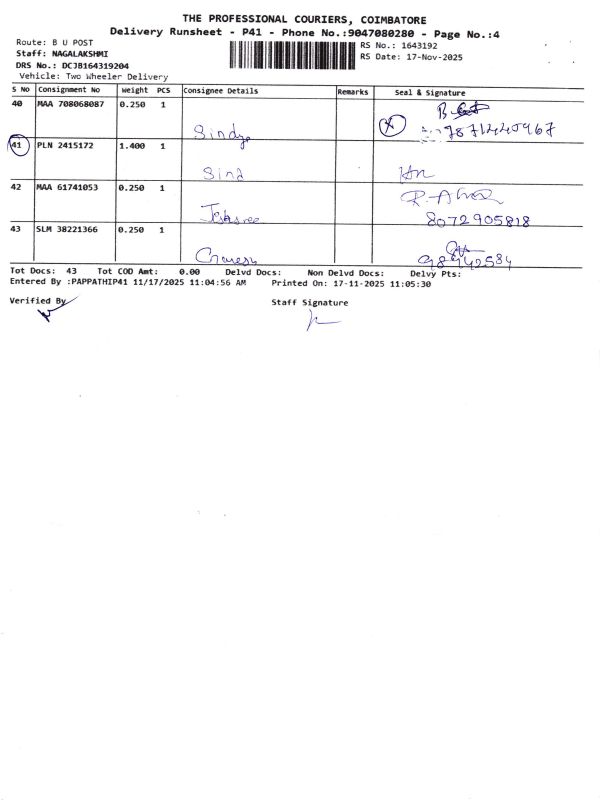 THE PROFESSIONAL COURIERS, COIMBATORE
Delivery Runsheet - P41 - Phone No.:9047080280 - Page No.:4
Route: B U POST
RS No.: 1643192
Staff: NAGALAKSHMI
RS Date: 17-Nov-2025
DRS No.: DCJB164319204
Vehicle: Two Wheeler Delivery
S No Consignment No Weight PCS Consignee Details Remarks Seal & Signature
40 MAA 708068087 0.250 1
41 PLN 2415172 1.400 1
42 MAA 61741053 0.250 1
8072905818
43 SLM 38221366 0.250 1
Tot Docs: 43 Tot COD Amt: 0.00 Delvd Docs: Non Delvd Docs: Delvy Pts:
Entered By :PAPPATHIP41 11/17/2025 11:04:56 AM Printed On: 17-11-2025 11:05:30
Verified By Staff Signature